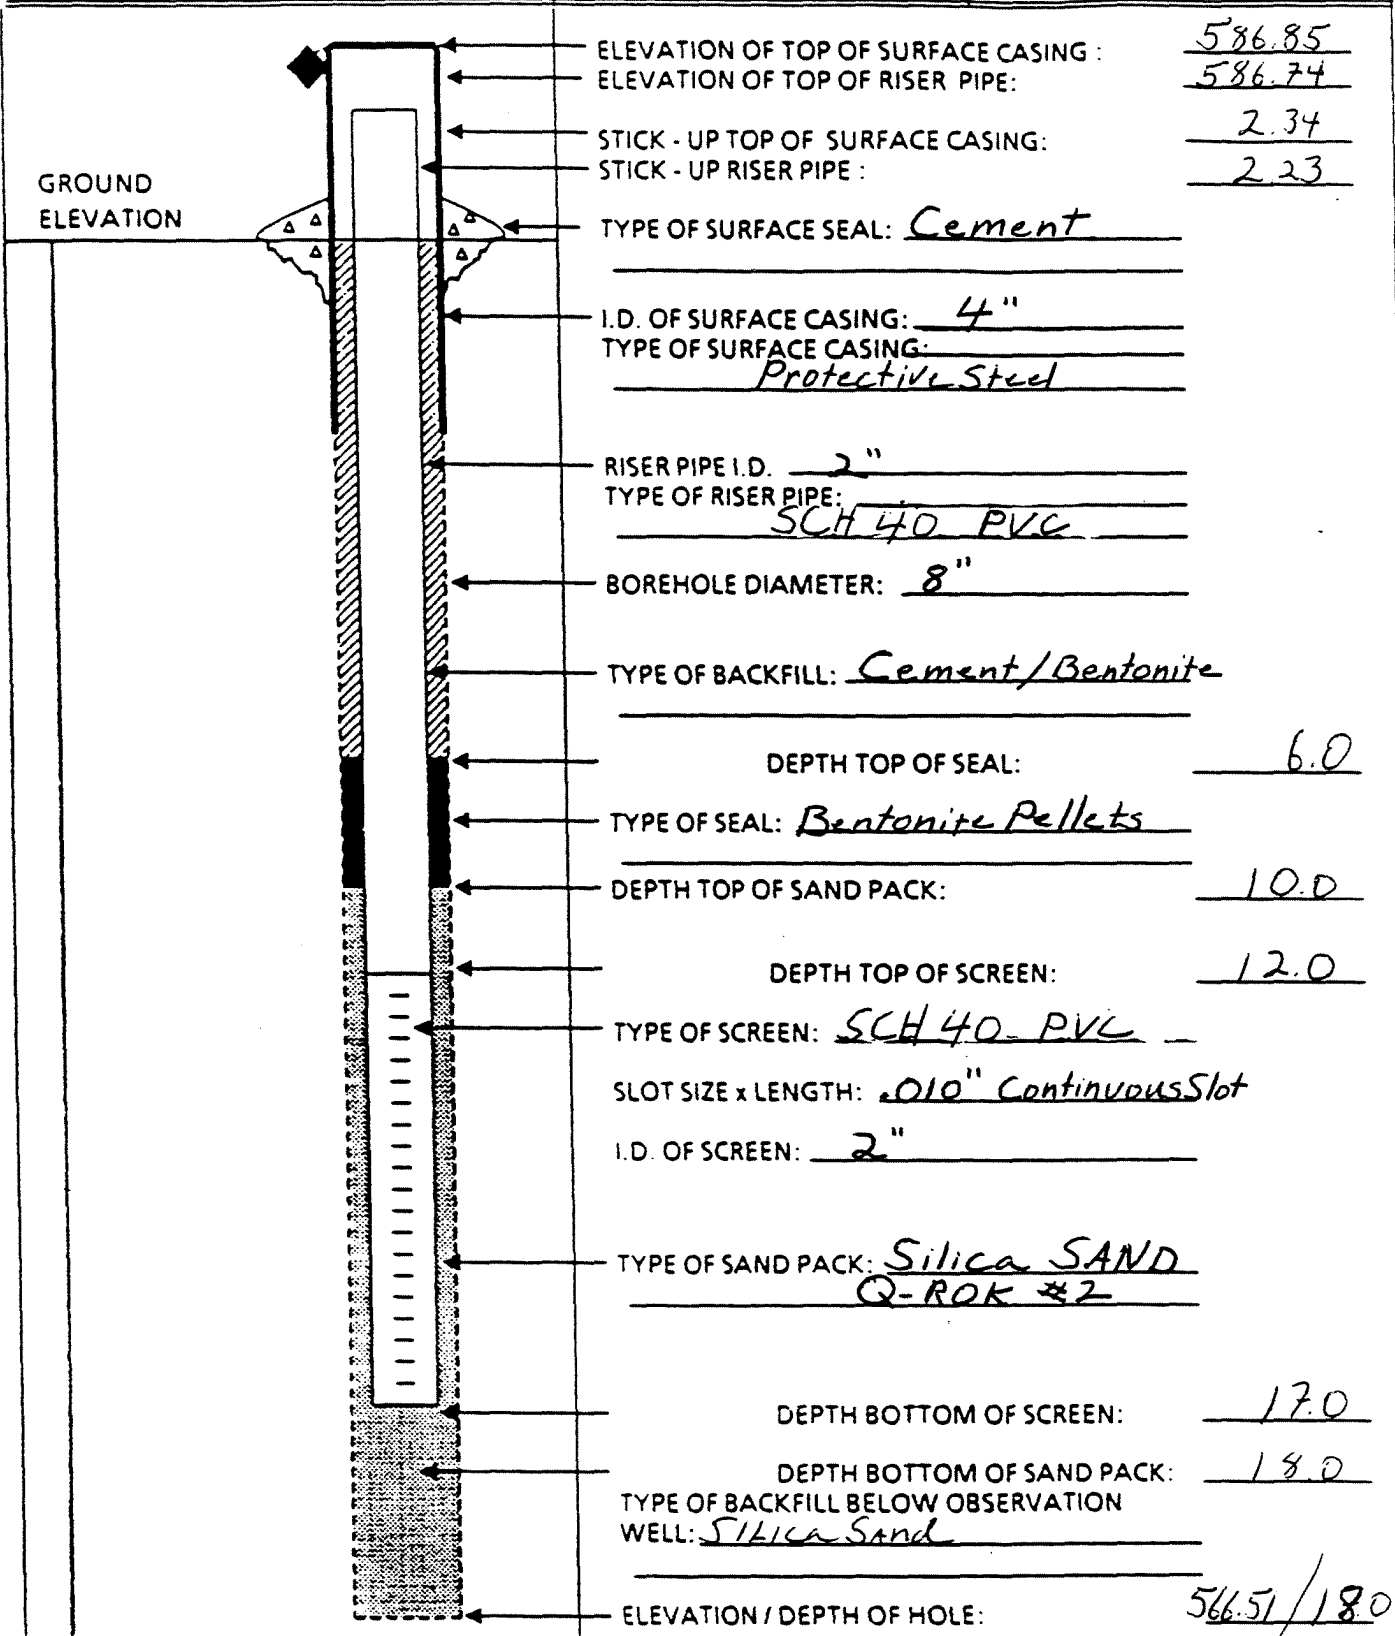 ELEVATION OF TOP OF SURFACE CASING : 586.85
ELEVATION OF TOP OF RISER PIPE: 586.74
STICK - UP TOP OF SURFACE CASING: 2.34
STICK - UP RISER PIPE : 2.23
GROUND
ELEVATION
TYPE OF SURFACE SEAL: Cement
I.D. OF SURFACE CASING: 4"
TYPE OF SURFACE CASING:
Protective Steel
RISER PIPE I.D. 2"
TYPE OF RISER PIPE:
SCH 40 PVC
BOREHOLE DIAMETER: 8"
TYPE OF BACKFILL: Cement/Bentonite
DEPTH TOP OF SEAL: 6.0
TYPE OF SEAL: Bentonite Pellets
DEPTH TOP OF SAND PACK: 10.0
DEPTH TOP OF SCREEN: 12.0
TYPE OF SCREEN: SCH 40 PVC
SLOT SIZE x LENGTH: .010" Continuous Slot
I.D. OF SCREEN: 2"
TYPE OF SAND PACK: Silica SAND
Q-ROK #2
DEPTH BOTTOM OF SCREEN: 17.0
DEPTH BOTTOM OF SAND PACK: 18.0
TYPE OF BACKFILL BELOW OBSERVATION
WELL: SILICa SAnd
ELEVATION / DEPTH OF HOLE: 566.51/18.0